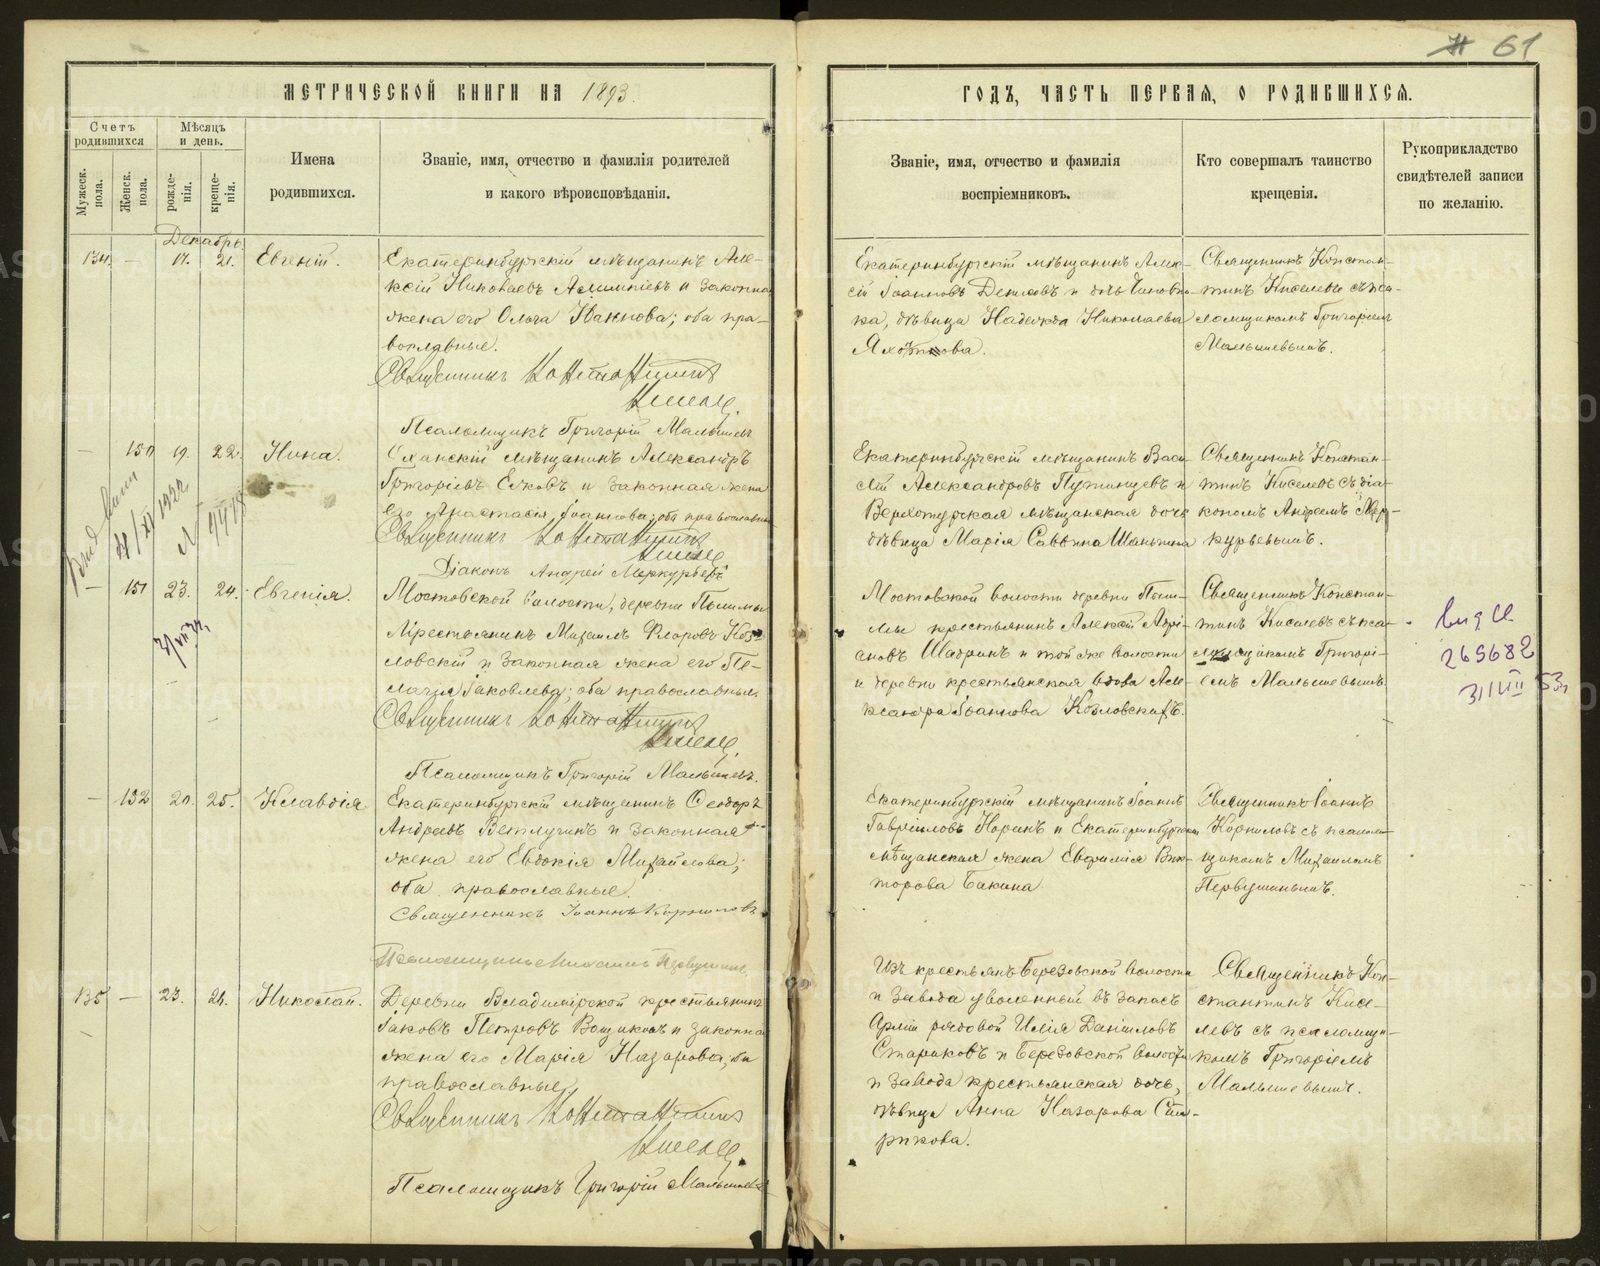 61
МЕТРИЧЕСКОЙ КНИГИ НА 1893
ГОДЪ, ЧАСТЬ ПЕРВАЯ, О РОДИВШИХСЯ.
Счетъ родившихся
Мѣсяцъ и день.
Мужеск. пола.
Женск. пола.
рожде-нія.
креще-нія.
Имена
родившихся.
Званіе, имя, отчество и фамилія родителей
и какого вѣроисповѣданія.
Званіе, имя, отчество и фамилія
воспріемниковъ.
Кто совершалъ таинство
крещенія.
Рукоприкладство
свидѣтелей записи
по желанію.
Декабрь
134. — 17. 21. Евгеній.
Екатеринбургскій мѣщанинъ Але-
ксій Николаевъ и законная
жена его Ольга Иванова; оба пра-
вославные.
Священникъ Константинъ
Киселевъ
Псаломщикъ Григорій Малышевъ
Екатеринбургскій мѣщанинъ Алек-
сій Іоанновъ Денисовъ и дочь чиновни-
ка, дѣвица Надежда Николаева
Священникъ Констан-
тинъ Киселевъ съ пса-
ломщикомъ Григоріемъ
Малышевымъ.
— 150 19. 22. Нина.
Оханскій мѣщанинъ Александръ
Григорьевъ Ежовъ и законная жена
его Анастасія Іоаннова; оба православные
Священникъ Константинъ
Киселевъ
Діаконъ Андрей Меркурьевъ
Екатеринбургскій мѣщанинъ Васи-
лій Александровъ Путинцевъ и
Верхотурская мѣщанская дочь
дѣвица Марія Саввина Шаньгина
Священникъ Констан-
тинъ Киселевъ съ діа-
кономъ Андреемъ Мер-
курьевымъ.
— 151 23. 24. Евгенія.
Мостовской волости, деревни
крестьянинъ Михаилъ Флоровъ Коз-
ловскій и законная жена его Пе-
лагія Іаковлева; оба православные
Священникъ Константинъ
Киселевъ
Псаломщикъ Григорій Малышевъ.
Мостовской волости деревни
крестьянинъ Алексій Адрі-
ановъ Шадринъ и той же волости
и деревни крестьянская вдова Але-
ксандра Іоаннова Козловскихъ.
Священникъ Констан-
тинъ Киселевъ съ пса-
ломщикомъ Григорі-
емъ Малышевымъ.
269682
— 152 20. 25. Клавдія.
Екатеринбургскій мѣщанинъ Ѳеодоръ
Андреевъ Ветлугинъ и законная
жена его Евдокія Михайлова;
оба православные.
Священникъ Іоаннъ Корниловъ
Псаломщикъ Михаилъ Первушинъ.
Екатеринбургскій мѣщанинъ Іоаннъ
Гавріиловъ Норинъ и Екатеринбургская
мѣщанская жена Евфимія Вик-
торова Бакина
Священникъ Іоаннъ
Корниловъ съ псалом-
щикомъ Михаиломъ
Первушинымъ.
135 — 23. 26. Николай.
Деревни Владимірской крестьянинъ
Іаковъ Петровъ и законная
жена его Марія Назарова, оба
православные.
Священникъ Константинъ
Киселевъ
Псаломщикъ Григорій Малышевъ
Изъ крестьянъ Березовской волости
и завода уволенный въ запасъ
Арміи рядовой Илія Даніиловъ
Стариковъ и Березовской волости
и завода крестьянская дочь,
дѣвица Анна Назарова Ста-
рикова.
Священникъ Кон-
стантинъ Кисе-
левъ съ псаломщи-
комъ Григоріемъ
Малышевымъ.